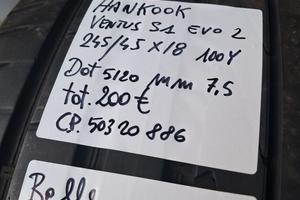 HANKOOK
VENTUS S1 EVO 2
245/45X18 100Y
Dot 5120 mm 7,5
tot. 200 €
CP. 50320886